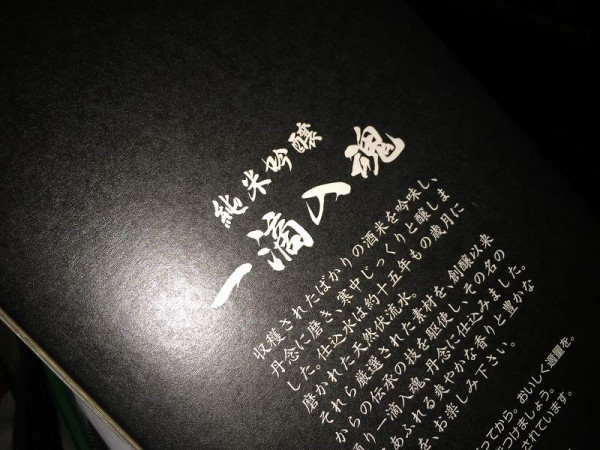 純米吟醸
一滴入魂
収穫されたばかりの酒米を吟味し、
丹念に磨き、寒中じっくりと醸しま
した。仕込水は約十五年もの歳月に
磨かれた天然伏流水。
それら厳選された素材を、創醸以来
からの伝承の技を駆使し、その名の
通り一滴入魂、丹念に仕込みました。
あふれる爽やかな香りと豊かな
を、お楽しみ下さい。
ってから。おいしく適量を。
つけましょう。
されています。